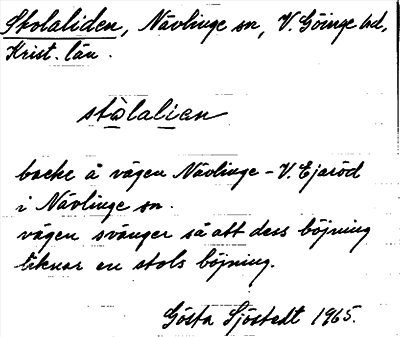 Stolaliden, Nävlinge sn, V. Göinge hd,
Krist. län.
stålalian
backe å vägen Nävlinge - V. Ejaröd
i Nävlinge sn.
vägen svänger så att dess böjning
liknar en stols böjning.
Gösta Sjöstedt 1965.